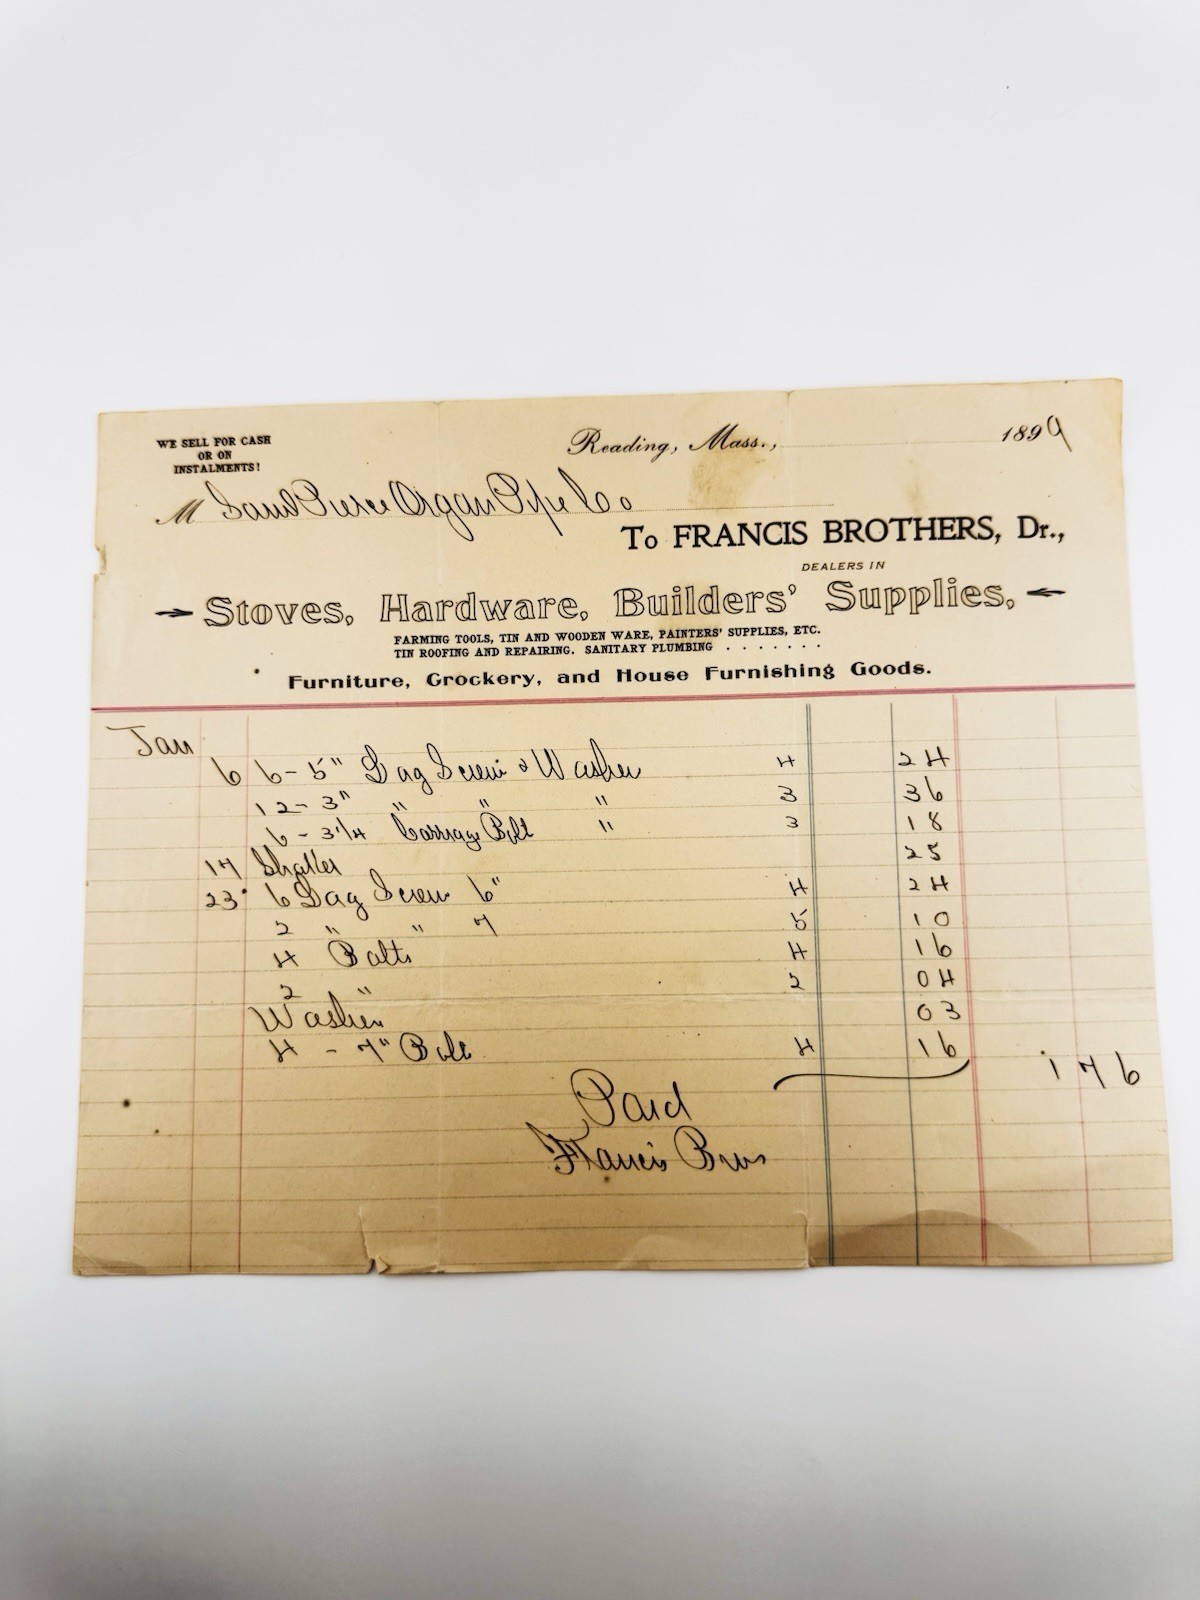 WE SELL FOR CASH
OR ON
INSTALMENTS!
Reading, Mass., 1899
M Saml Pierce Organ Pipe Co
To FRANCIS BROTHERS, Dr.,
DEALERS IN
Stoves, Hardware, Builders' Supplies,
FARMING TOOLS, TIN AND WOODEN WARE, PAINTERS' SUPPLIES, ETC.
TIN ROOFING AND REPAIRING. SANITARY PLUMBING . . . . . . .
Furniture, Crockery, and House Furnishing Goods.
Jan
6 6 - 5" Lag Screw & Washer 4 24
12 - 3" " " " 3 36
6 - 3 1/4 Carriage Bolt " 3 18
17 25
23 6 Lag Screw 6" 4 24
2 " " 7 5 10
4 Bolts 4 16
2 " 2 04
Washers 03
4 - 7" Bolt 4 16
1 76
Paid
Francis Bros